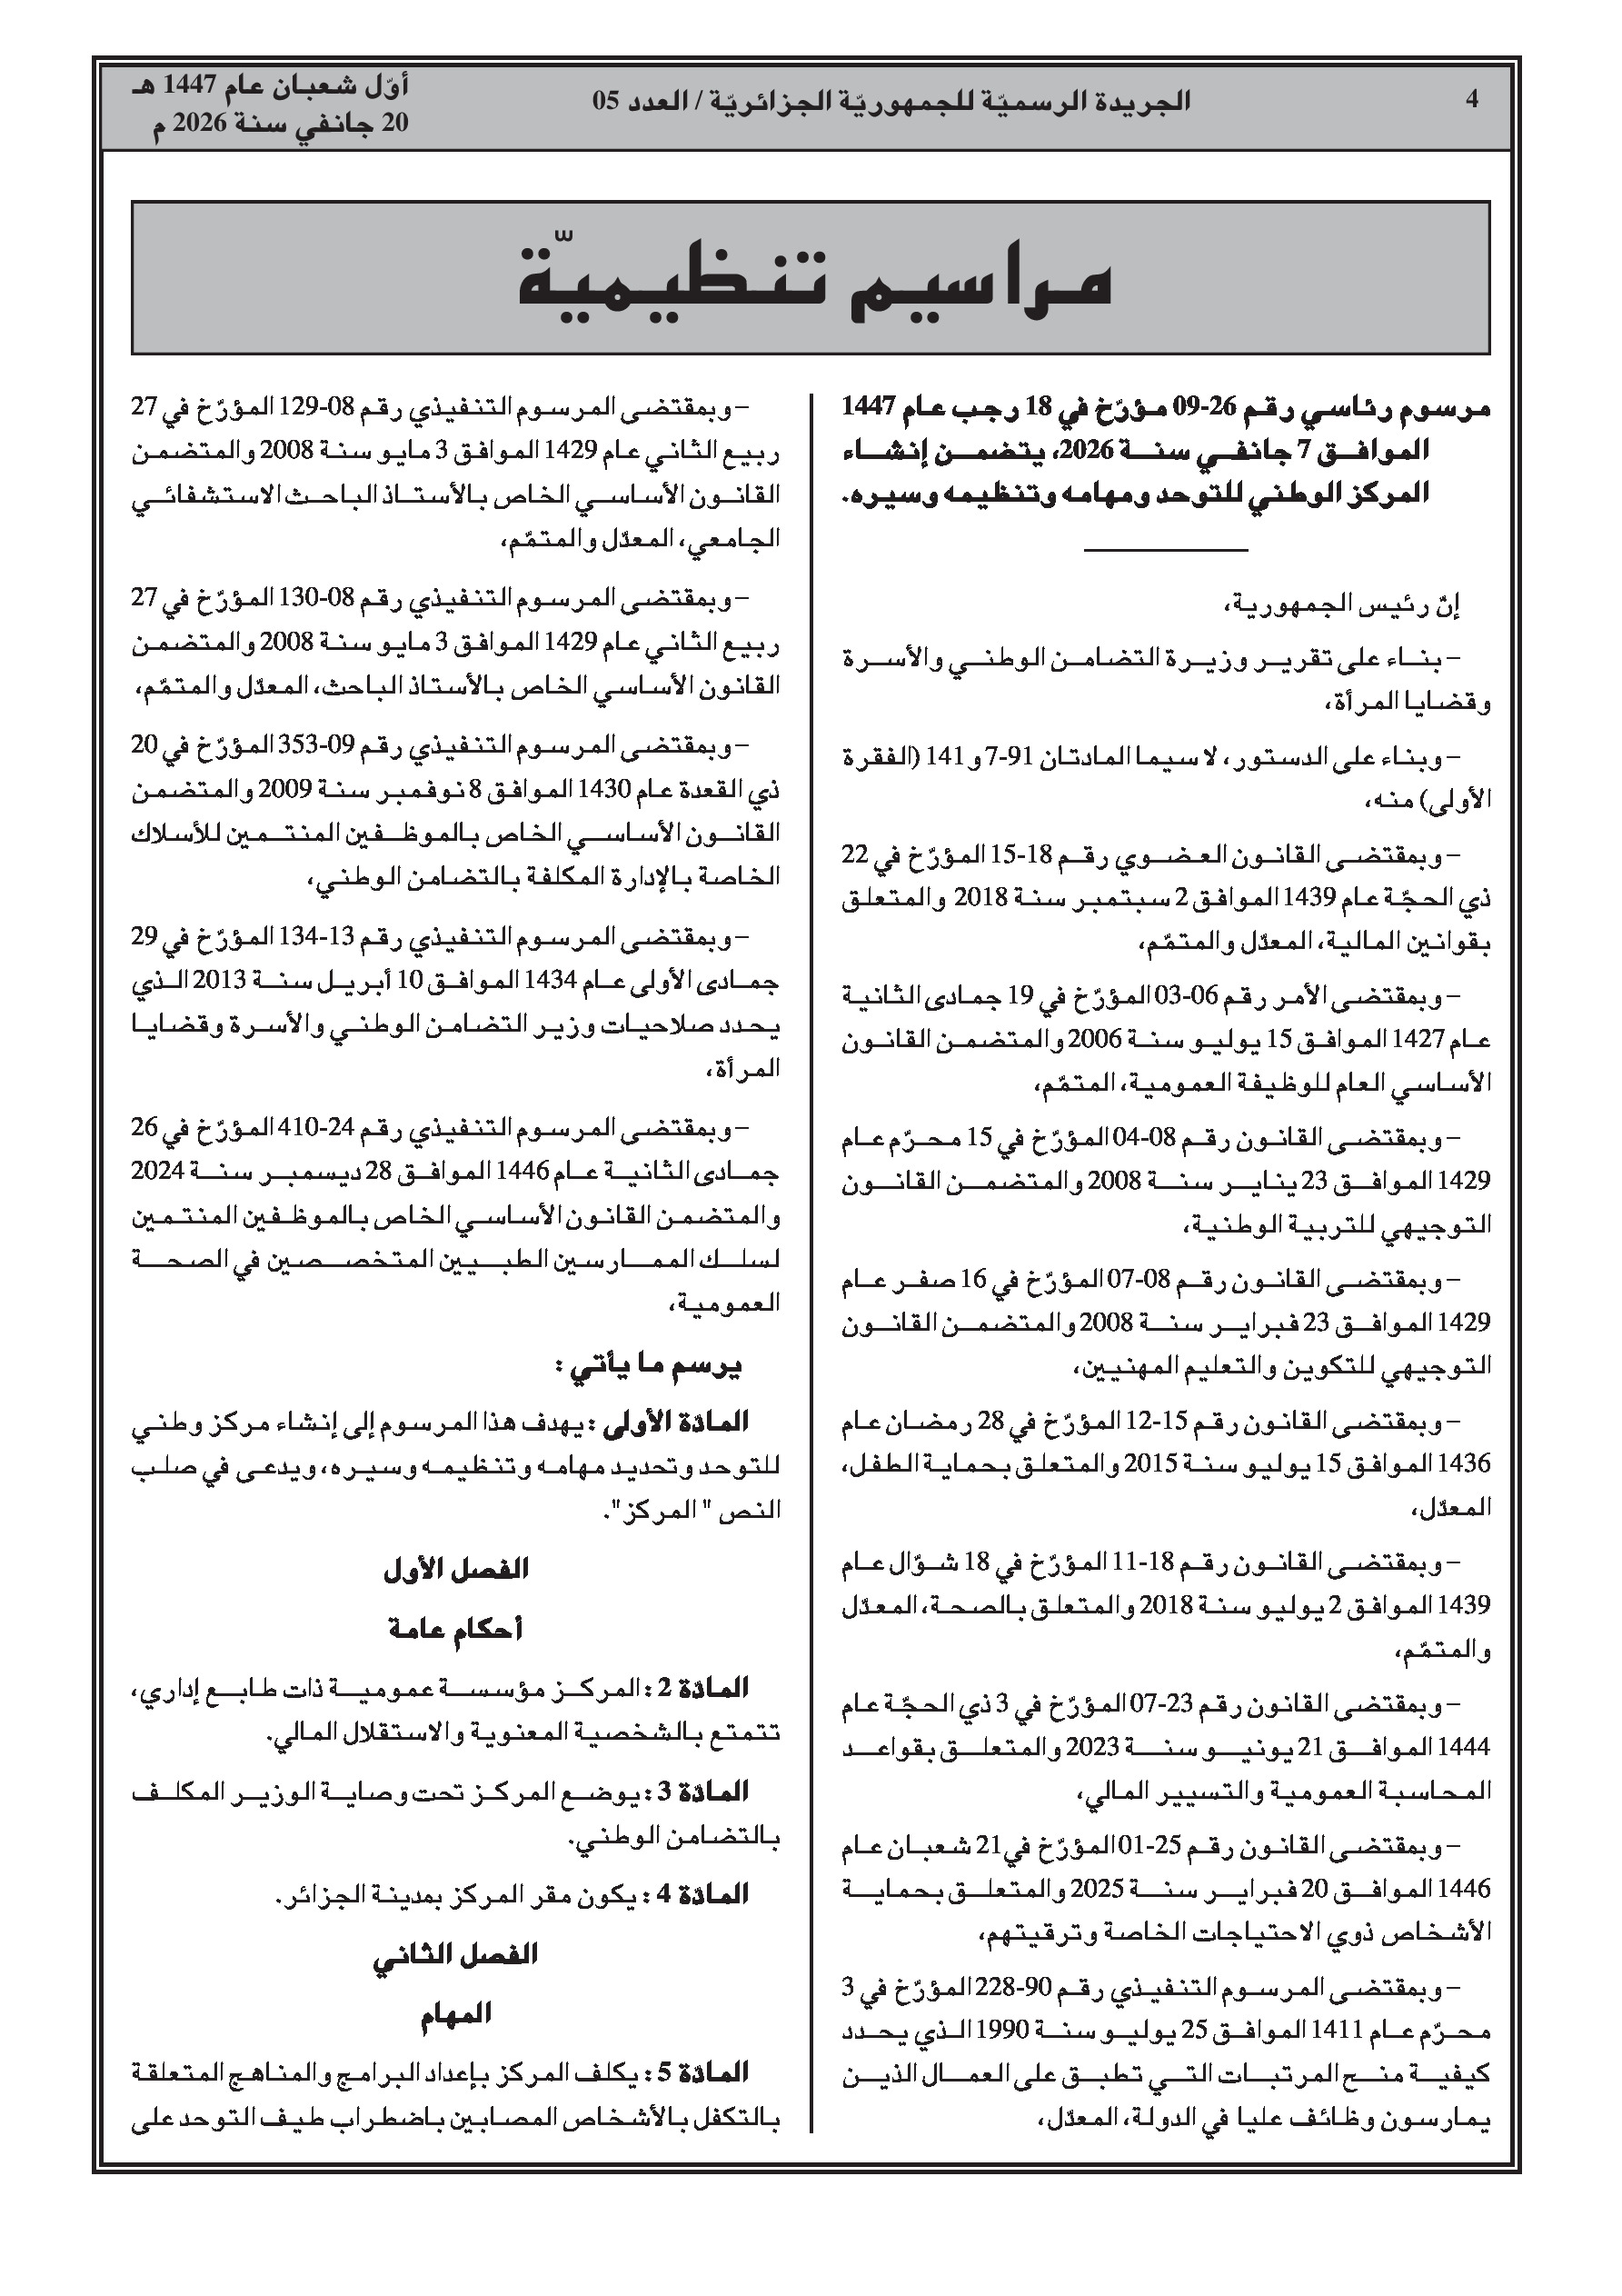 4
الجريدة الرسميّة للجمهوريّة الجزائريّة / العدد 05
أوّل شعبان عام 1447 هـ
20 جانفي سنة 2026 م
مراسيم تنظيميّة
مرسوم رئاسي رقم 26-09 مؤرّخ في 18 رجب عام 1447
الموافق 7 جانفي سنة 2026، يتضمن إنشاء
المركز الوطني للتوحد ومهامه وتنظيمه وسيره.
إنّ رئيس الجمهورية،
– بناء على تقرير وزيرة التضامن الوطني والأسرة
وقضايا المرأة،
– وبناء على الدستور، لا سيما المادتان 91-7 و141 (الفقرة
الأولى) منه،
– وبمقتضى القانون العضوي رقم 18-15 المؤرّخ في 22
ذي الحجّة عام 1439 الموافق 2 سبتمبر سنة 2018 والمتعلق
بقوانين المالية، المعدّل والمتمّم،
– وبمقتضى الأمر رقم 06-03 المؤرّخ في 19 جمادى الثانية
عام 1427 الموافق 15 يوليو سنة 2006 والمتضمن القانون
الأساسي العام للوظيفة العمومية، المتمّم،
– وبمقتضى القانون رقم 08-04 المؤرّخ في 15 محرّم عام
1429 الموافق 23 يناير سنة 2008 والمتضمن القانون
التوجيهي للتربية الوطنية،
– وبمقتضى القانون رقم 08-07 المؤرّخ في 16 صفر عام
1429 الموافق 23 فبراير سنة 2008 والمتضمن القانون
التوجيهي للتكوين والتعليم المهنيين،
– وبمقتضى القانون رقم 15-12 المؤرّخ في 28 رمضان عام
1436 الموافق 15 يوليو سنة 2015 والمتعلق بحماية الطفل،
المعدّل،
– وبمقتضى القانون رقم 18-11 المؤرّخ في 18 شوّال عام
1439 الموافق 2 يوليو سنة 2018 والمتعلق بالصحة، المعدّل
والمتمّم،
– وبمقتضى القانون رقم 23-07 المؤرّخ في 3 ذي الحجّة عام
1444 الموافق 21 يونيو سنة 2023 والمتعلق بقواعد
المحاسبة العمومية والتسيير المالي،
– وبمقتضى القانون رقم 25-01 المؤرّخ في 21 شعبان عام
1446 الموافق 20 فبراير سنة 2025 والمتعلق بحماية
الأشخاص ذوي الاحتياجات الخاصة وترقيتهم،
– وبمقتضى المرسوم التنفيذي رقم 90-228 المؤرّخ في 3
محرّم عام 1411 الموافق 25 يوليو سنة 1990 الذي يحدد
كيفية منح المرتبات التي تطبق على العمال الذين
يمارسون وظائف عليا في الدولة، المعدّل،
– وبمقتضى المرسوم التنفيذي رقم 08-129 المؤرّخ في 27
ربيع الثاني عام 1429 الموافق 3 مايو سنة 2008 والمتضمن
القانون الأساسي الخاص بالأستاذ الباحث الاستشفائي
الجامعي، المعدّل والمتمّم،
– وبمقتضى المرسوم التنفيذي رقم 08-130 المؤرّخ في 27
ربيع الثاني عام 1429 الموافق 3 مايو سنة 2008 والمتضمن
القانون الأساسي الخاص بالأستاذ الباحث، المعدّل والمتمّم،
– وبمقتضى المرسوم التنفيذي رقم 09-353 المؤرّخ في 20
ذي القعدة عام 1430 الموافق 8 نوفمبر سنة 2009 والمتضمن
القانون الأساسي الخاص بالموظفين المنتمين للأسلاك
الخاصة بالإدارة المكلفة بالتضامن الوطني،
– وبمقتضى المرسوم التنفيذي رقم 13-134 المؤرّخ في 29
جمادى الأولى عام 1434 الموافق 10 أبريل سنة 2013 الذي
يحدد صلاحيات وزير التضامن الوطني والأسرة وقضايا
المرأة،
– وبمقتضى المرسوم التنفيذي رقم 24-410 المؤرّخ في 26
جمادى الثانية عام 1446 الموافق 28 ديسمبر سنة 2024
والمتضمن القانون الأساسي الخاص بالموظفين المنتمين
لسلك الممارسين الطبيين المتخصصين في الصحة
العمومية،
يرسم ما يأتي :
المادّة الأولى : يهدف هذا المرسوم إلى إنشاء مركز وطني
للتوحد وتحديد مهامه وتنظيمه وسيره، ويدعى في صلب
النص " المركز".
الفصل الأول
أحكام عامة
المادّة 2 : المركز مؤسسة عمومية ذات طابع إداري،
تتمتع بالشخصية المعنوية والاستقلال المالي.
المادّة 3 : يوضع المركز تحت وصاية الوزير المكلف
بالتضامن الوطني.
المادّة 4 : يكون مقر المركز بمدينة الجزائر.
الفصل الثاني
المهام
المادّة 5 : يكلف المركز بإعداد البرامج والمناهج المتعلقة
بالتكفل بالأشخاص المصابين باضطراب طيف التوحد على